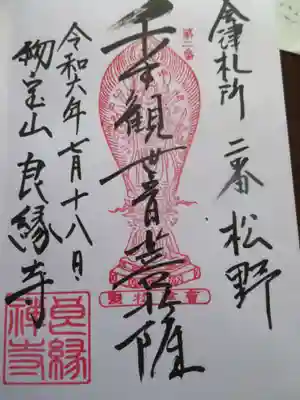 第二番
会津札所 二番 松野
千手観世音菩薩
令和六年七月十八日
物宝山 良縁寺
良縁